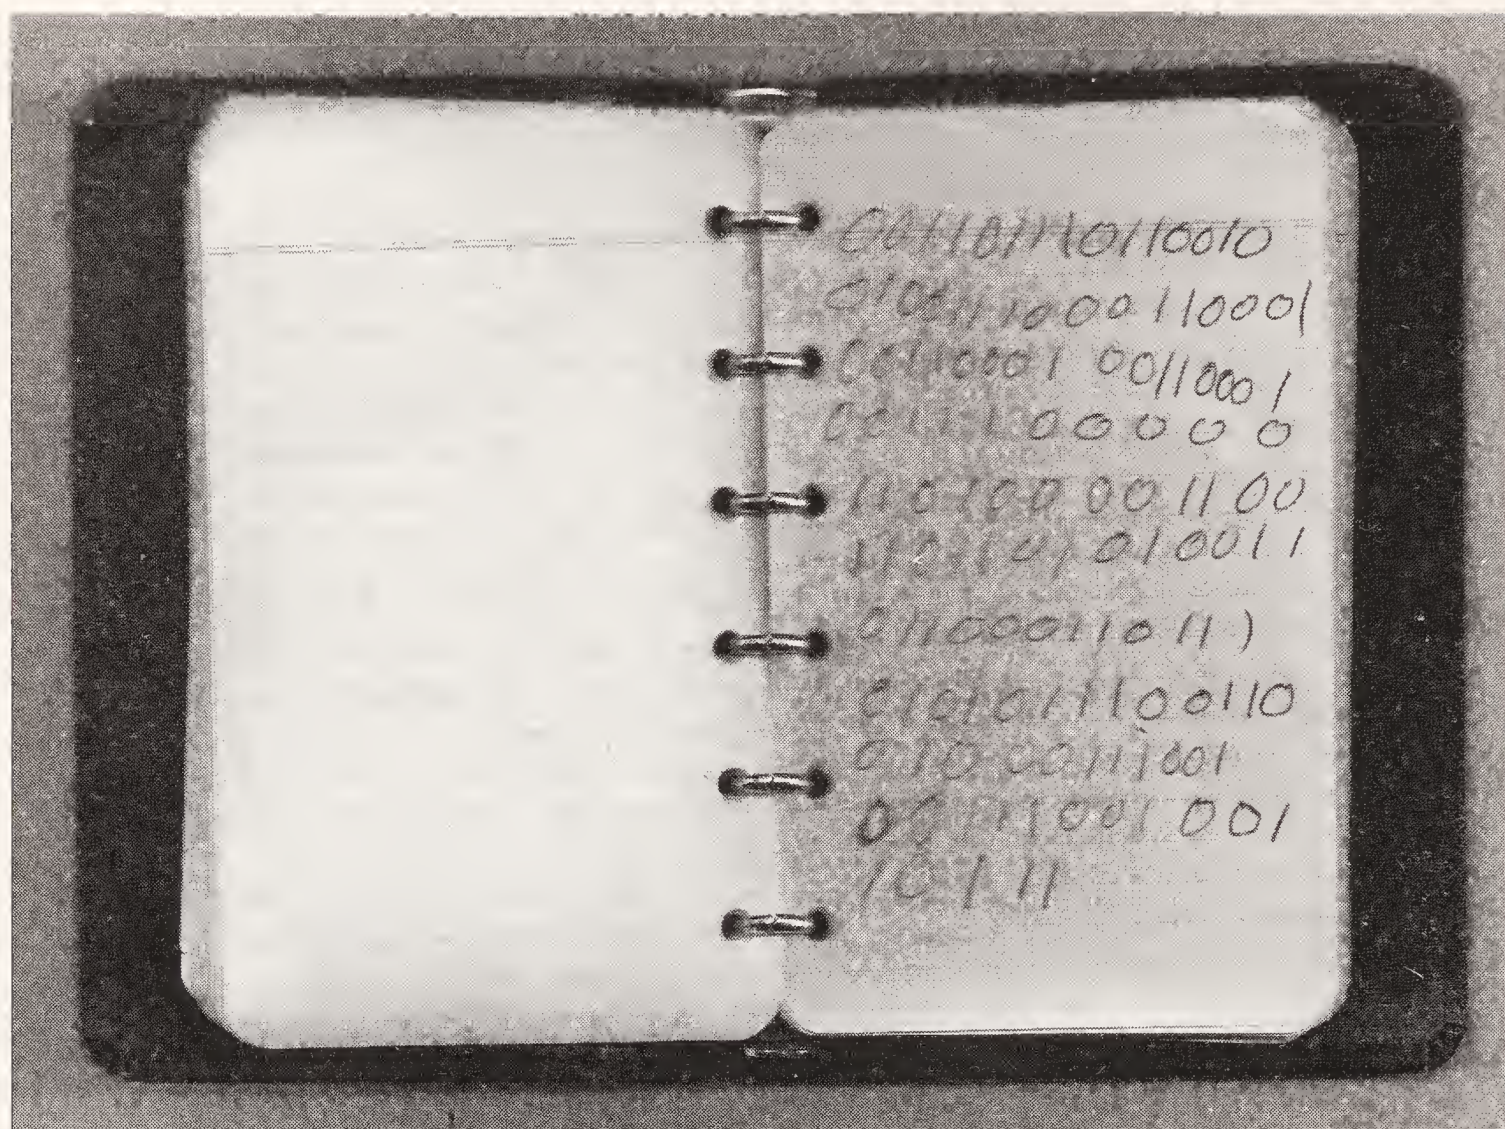 0011011110110010
0100111000110001
00110001 00110001
0011100000
110100001100
110101010011
011000110111
0101011100110
01000111001
00111001 001
10111